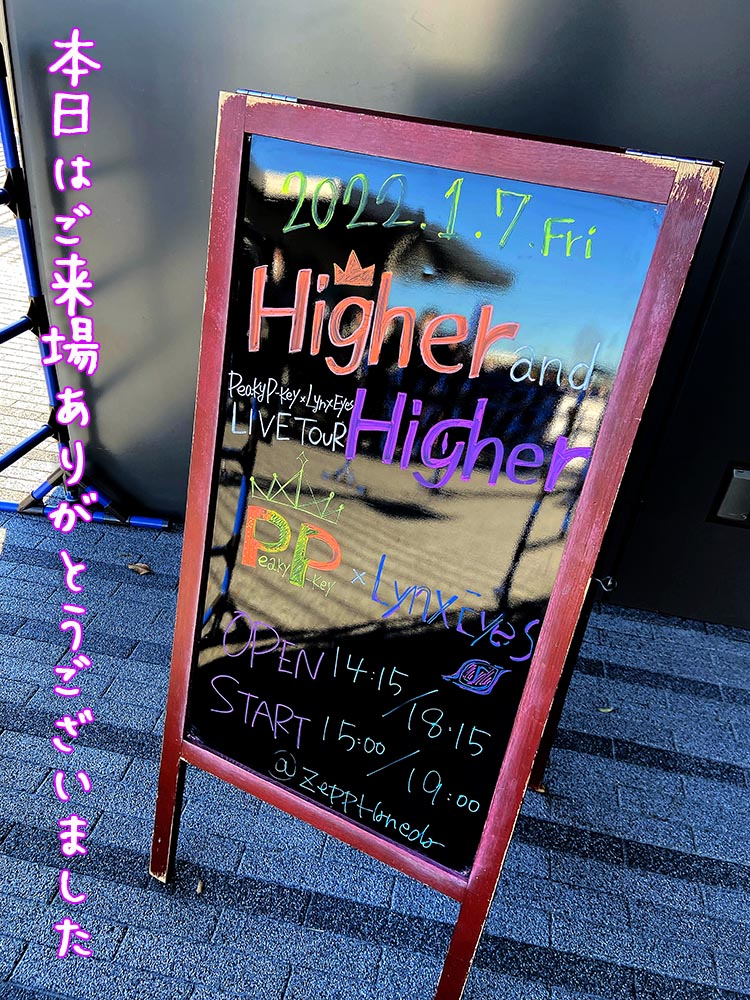 本日はご来場ありがとうございました
2022.1.7.Fri
Higher and
Peaky P-key × Lynx Eyes
LIVE TOUR Higher
PP
Peaky P-key
× Lynx Eyes
OPEN 14:15 / 18:15
START 15:00 / 19:00
@ Zepp Haneda